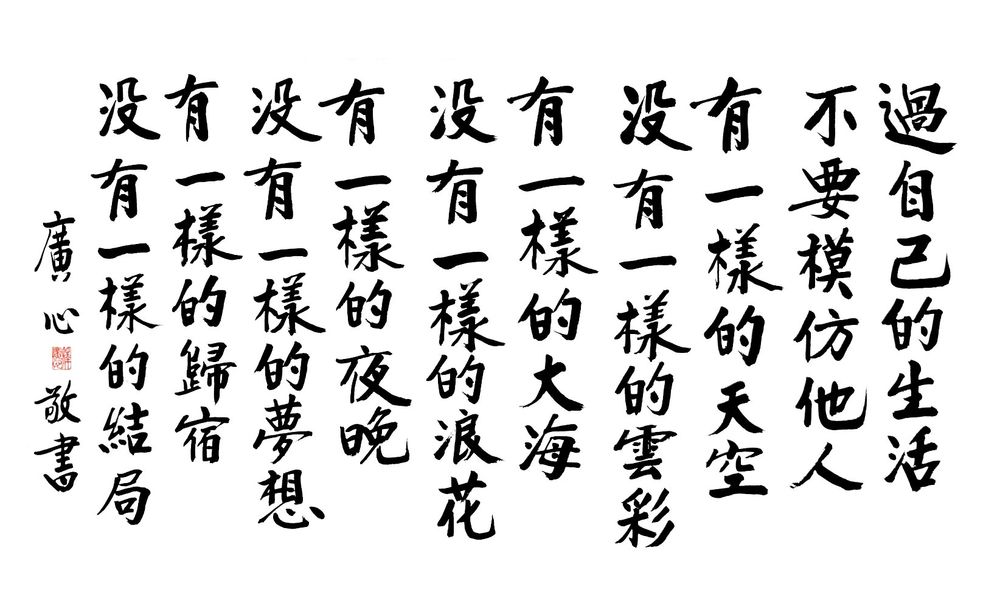 過自己的生活
不要模仿他人
有一樣的天空
没有一樣的雲彩
有一樣的大海
没有一樣的浪花
有一樣的夜晚
没有一樣的夢想
有一樣的歸宿
没有一樣的結局
廣心 敬書